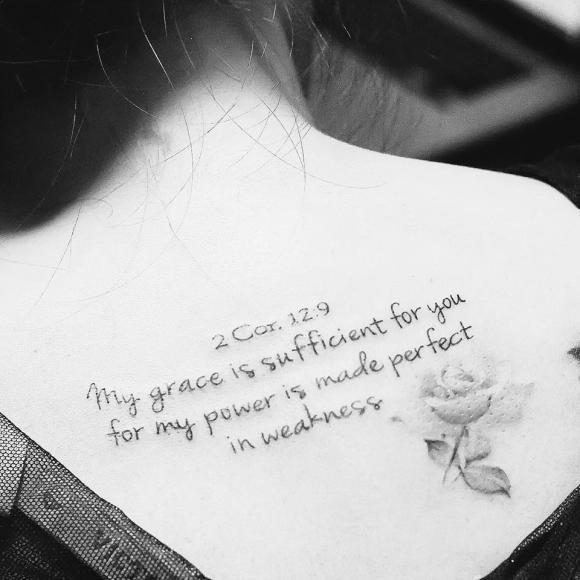 2 Cor. 12:9
My grace is sufficient for you
for my power is made perfect
in weakness